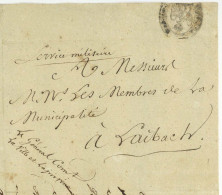 Service militaire
à Messieurs
M.rs Les Membres de La
Municipalité
à Laibach
Le Général Comt
la Ville et la province